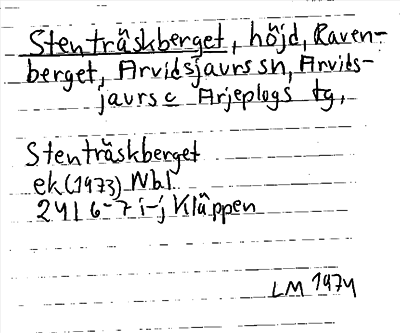 Stenträskberget, höjd, Raven-
berget, Arvidsjaurs sn, Arvids-
jaurs c Arjeplogs tg,
Stenträskberget
ek (1973) Nbl
24I 6-7 i-j Kläppen
LM 1974